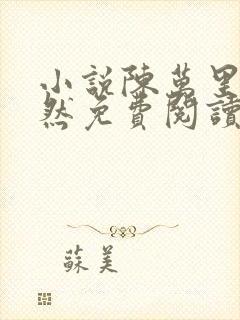 小説陳萬里
然免費閱讀
蘇美